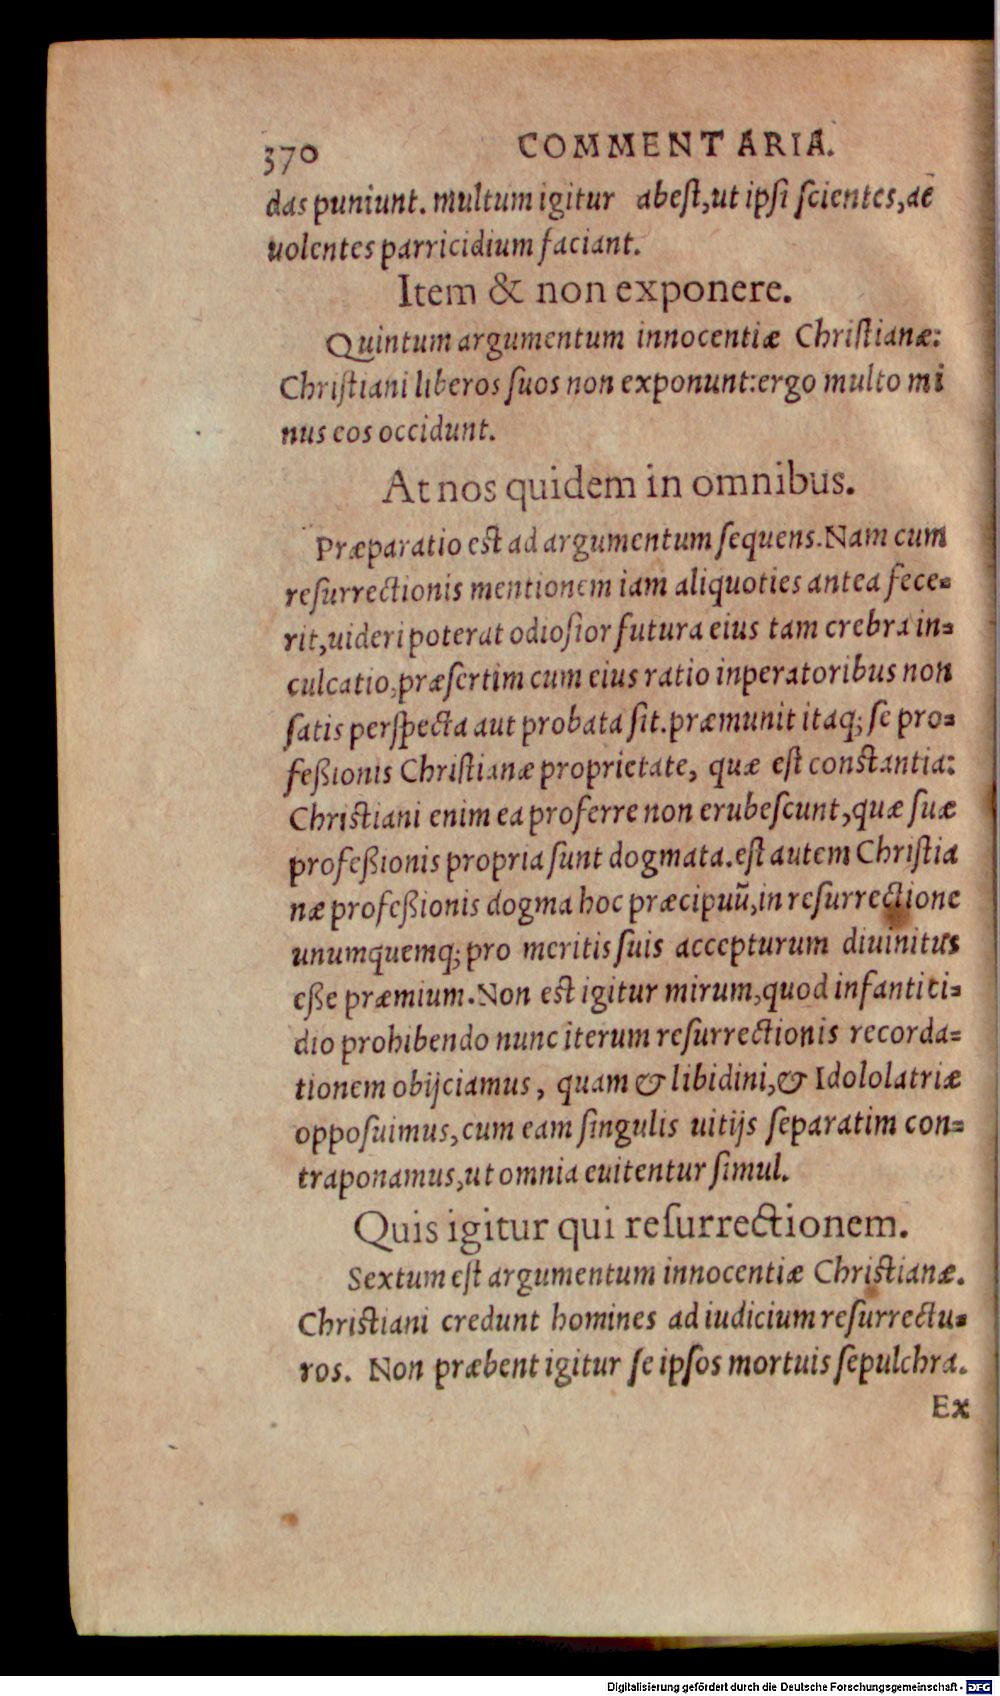 370 COMMENTARIA.
das puniunt. multum igitur abest, ut ipsi scientes, ac
uolentes parricidium faciant.
Item & non exponere.
Quintum argumentum innocentiæ Christianæ:
Christiani liberos suos non exponunt: ergo multo mi
nus eos occidunt.
At nos quidem in omnibus.
Præparatio est ad argumentum sequens. Nam cum
resurrectionis mentionem iam aliquoties antea fece-
rit, uideri poterat odiosior futura eius tam crebra in-
culcatio, præsertim cum eius ratio inperatoribus non
satis perspecta aut probata sit. præmunit itaq; se pro-
feßionis Christianæ proprietate, quæ est constantia:
Christiani enim ea proferre non erubescunt, quæ suæ
profeßionis propria sunt dogmata. est autem Christia
næ profeßionis dogma hoc præcipuũ, in resurrectione
unumquemq; pro meritis suis accepturum diuinitus
eße præmium. Non est igitur mirum, quod infantici-
dio prohibendo nunc iterum resurrectionis recorda-
tionem obijciamus, quam & libidini, & Idololatriæ
opposuimus, cum eam singulis uitijs separatim con-
traponamus, ut omnia euitentur simul.
Quis igitur qui resurrectionem.
Sextum est argumentum innocentiæ Christianæ.
Christiani credunt homines ad iudicium resurrectu-
ros. Non præbent igitur se ipsos mortuis sepulchra.
Ex
Digitalisierung gefördert durch die Deutsche Forschungsgemeinschaft - DFG